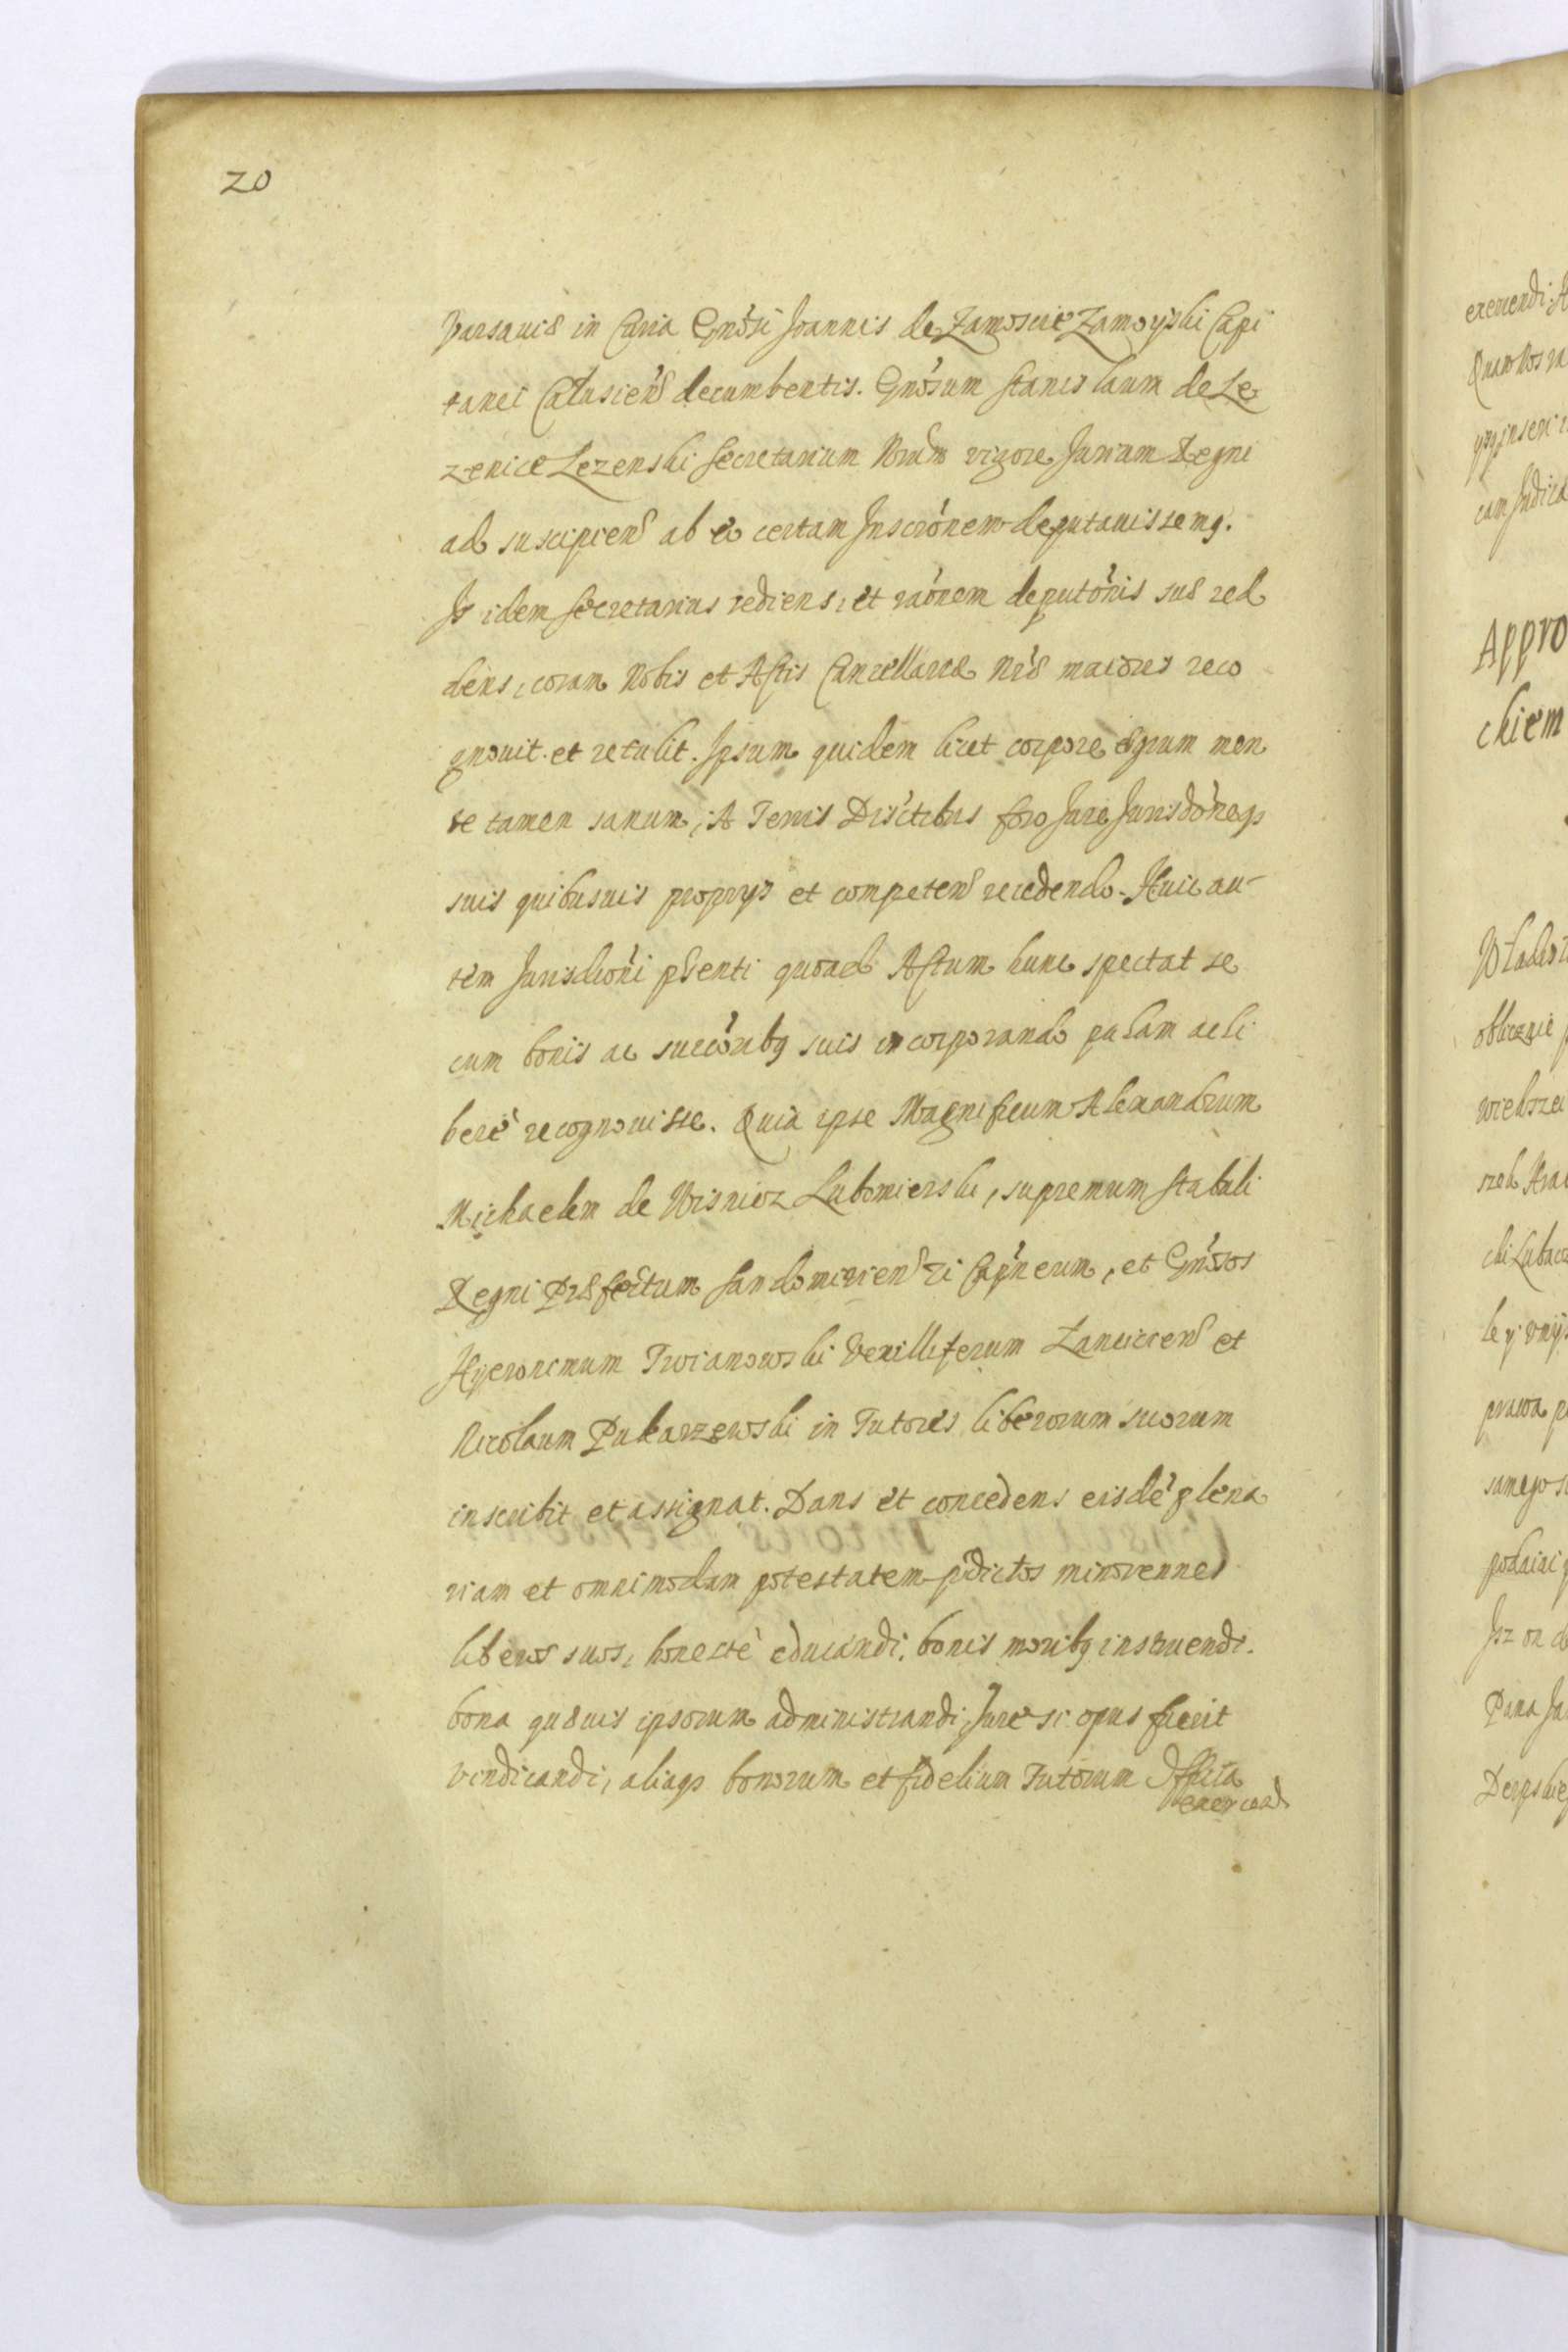 20
Varsauiæ in Curia Gnősi Joannis de Zamoscie Zamoyski Capi
tanei Calusień decumbentis. Gnősum Stanislaum de Le
zenice Lezenski Secretarium Nrum vigore Jurium Regni
ad suscipień ab eo certam Inscrőnem deputauissemq.
Is idem Secretarius rediens, et raőnem deputőnis suæ red
dens, coram Nobis et Actis Cancellariæ Nræ maioris reco
gnouit et retulit. Ipsum quidem licet corpore ægrum men
te tamen sanum, A Terris Disctibus foro Jure Jurisdőneq3
suis quibusuis proprys et competeń recedendo. Huic au-
tem Jurisdiőni pñti quoad Actum hunc spectat se
cum bonis ac succőribq suis incorporando palam ac li
berè recognouisse. Quia ipse Magnificum Alexandrum
Michaelem de Wisnicz Lubomierski, supremum Stabuli
Regni Præfectum Sandomirień zi Capneum, et Gnősos
Hyeronimum Troianowski Vexilliferum Lancicień et
Nicolaum Pukarzewski in Tutores liberorum suorum
inscribit et assignat. Dans et concedens eisdē plena
riam et omnimodam potestatem pdictos minorennes
liberos suos, honestè educandi, bonis moribq instruendi.
bona quæuis ipsorum administrandi, Jure si opus fuerit
vindicandi, aliaq3 bonorum et fidelium Tutorum Officia
exercend
exercendi
Appro
chiem